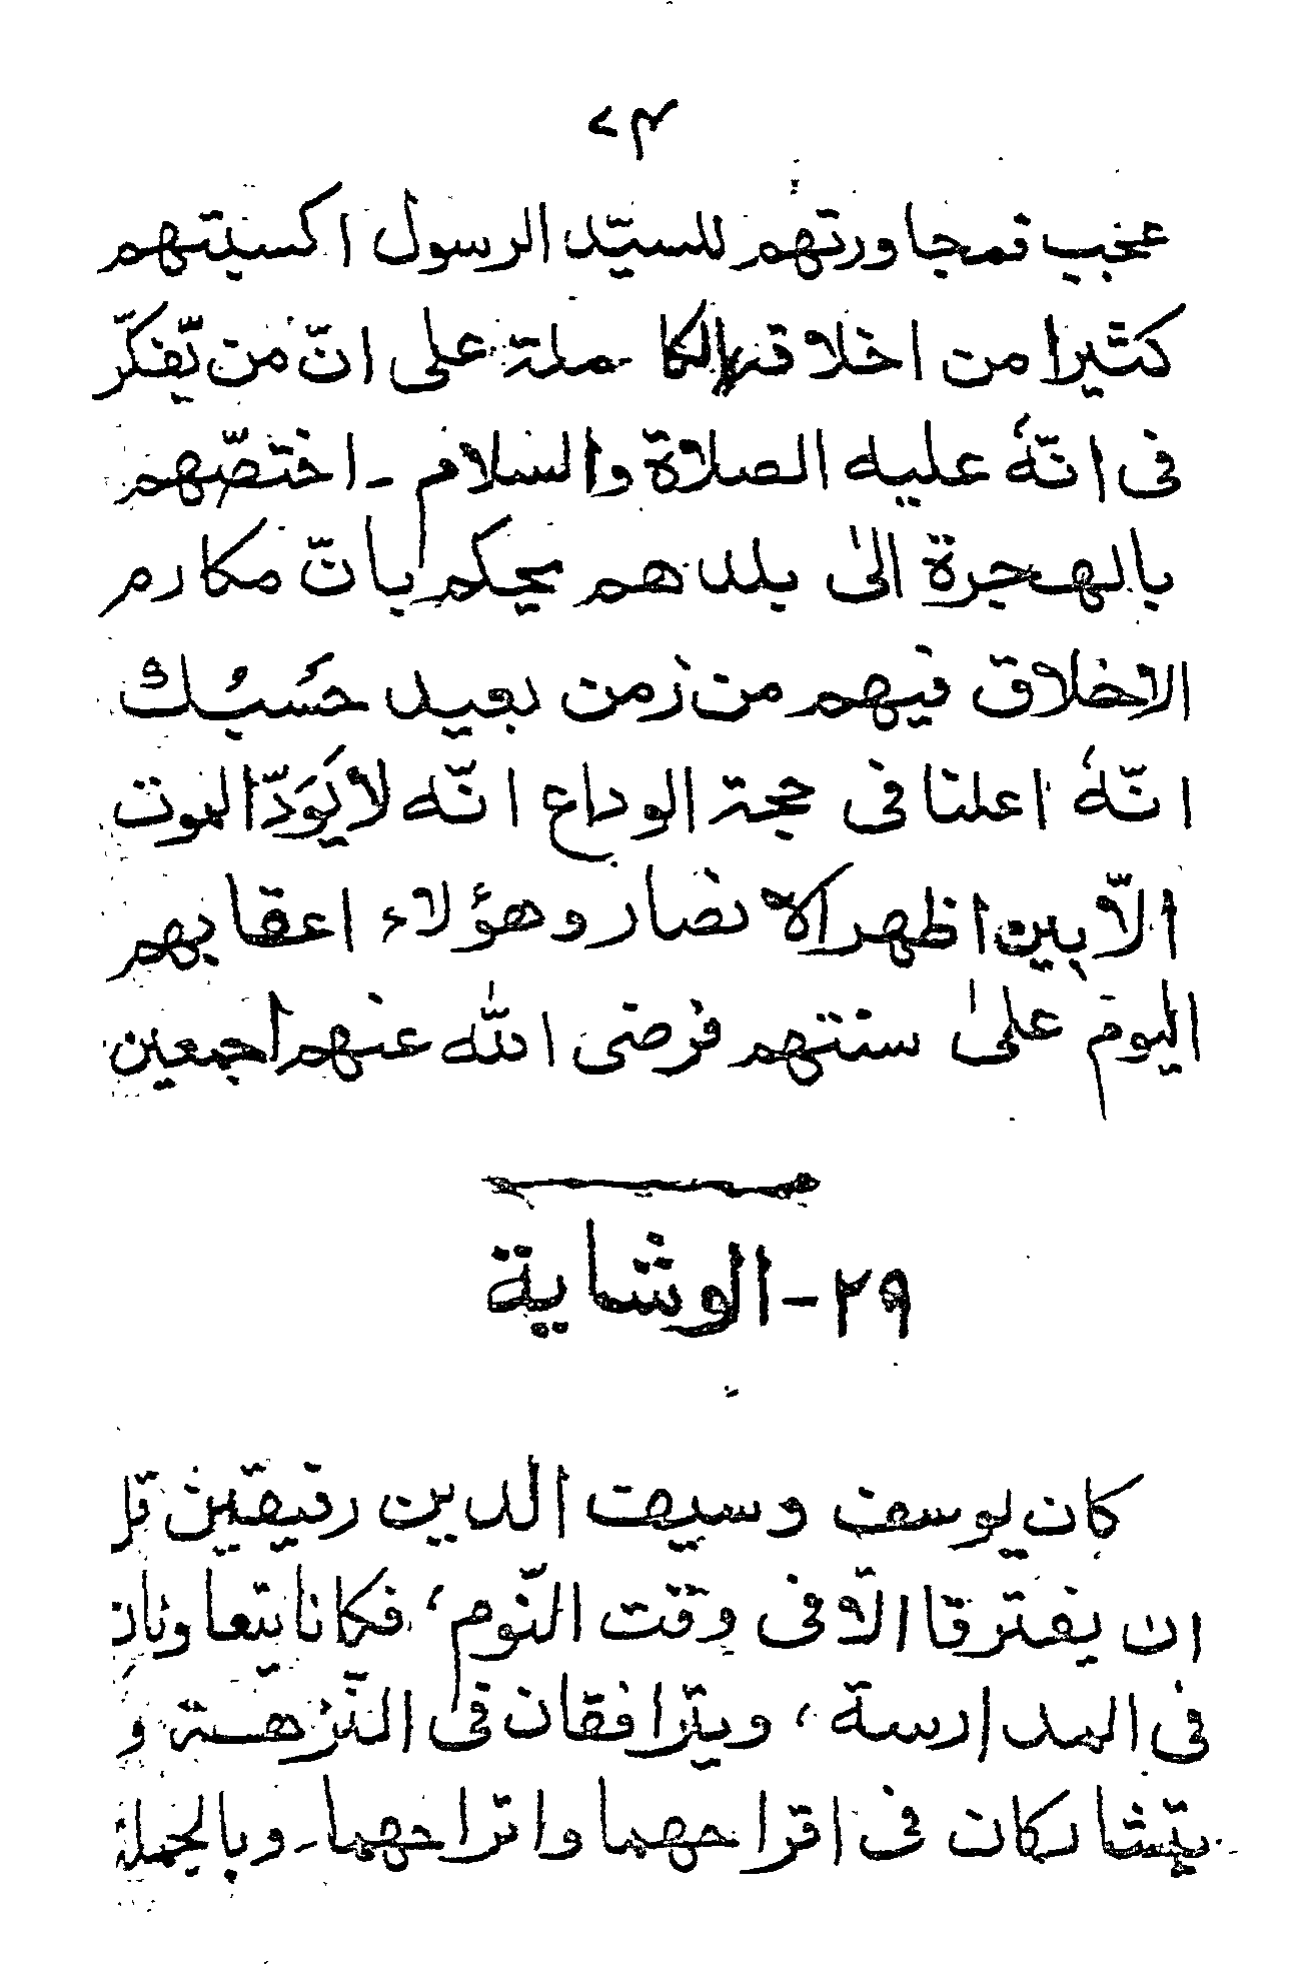 ٧٤
عجب فمجاورتهم للسيّد الرسول اكسبتهم
كثيرا من اخلاقه الكاملة على انّ من يّفكّر
فى انّهٗ عليه الصلاة والسلام ـ اختصّهم
بالهجرة الىٰ بلدهم يحكم بانّ مكارم
الاخلاق فيهم من زمن بعيد حَسبُك
انّهٗ اعلنا فى حجة الوداع انّه لا يَوَدّ الموت
الّا بين اظهر الانصار وهؤلاء اعقابهم
اليوم علىٰ سنتهم فرضى الله عنهم اجمعين
٢٩ - الوشاية
كان يوسف وسيف الدين رفيقين قل
ان يفترقا الّا فى وقت النّوم، فكانا يتعاونان
فى المدارسة، ويترافقان فى النّزهة و
يتشاركان فى اقراحهما واتراحهما ـ وبالجملة